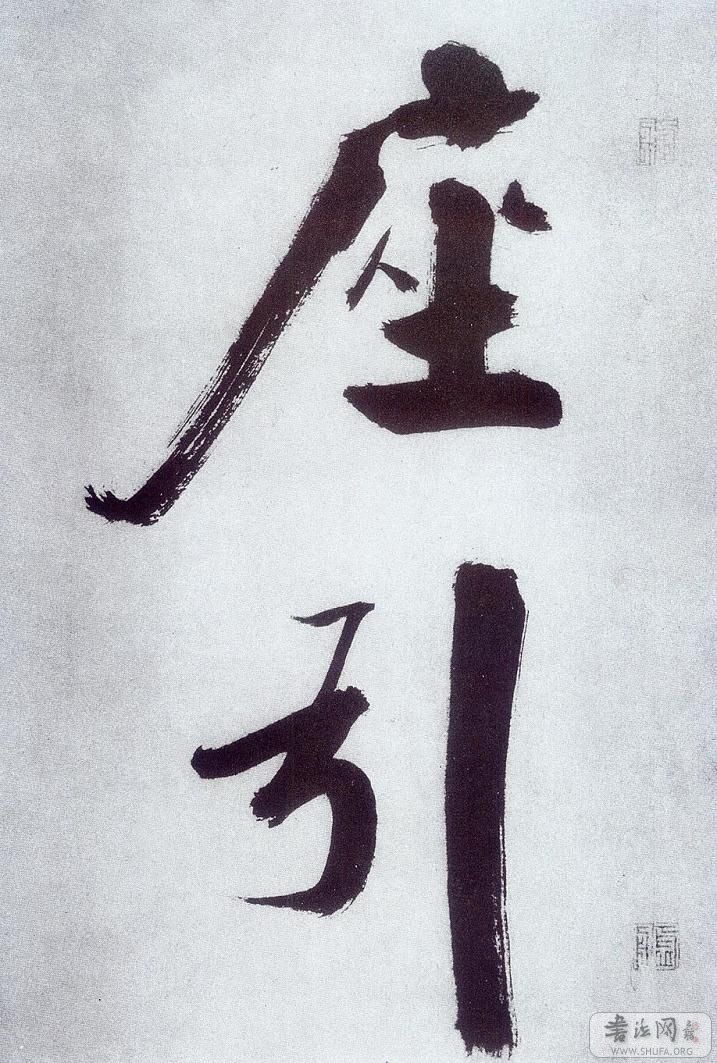 座
引
书法网
WWW.SHUFA.ORG